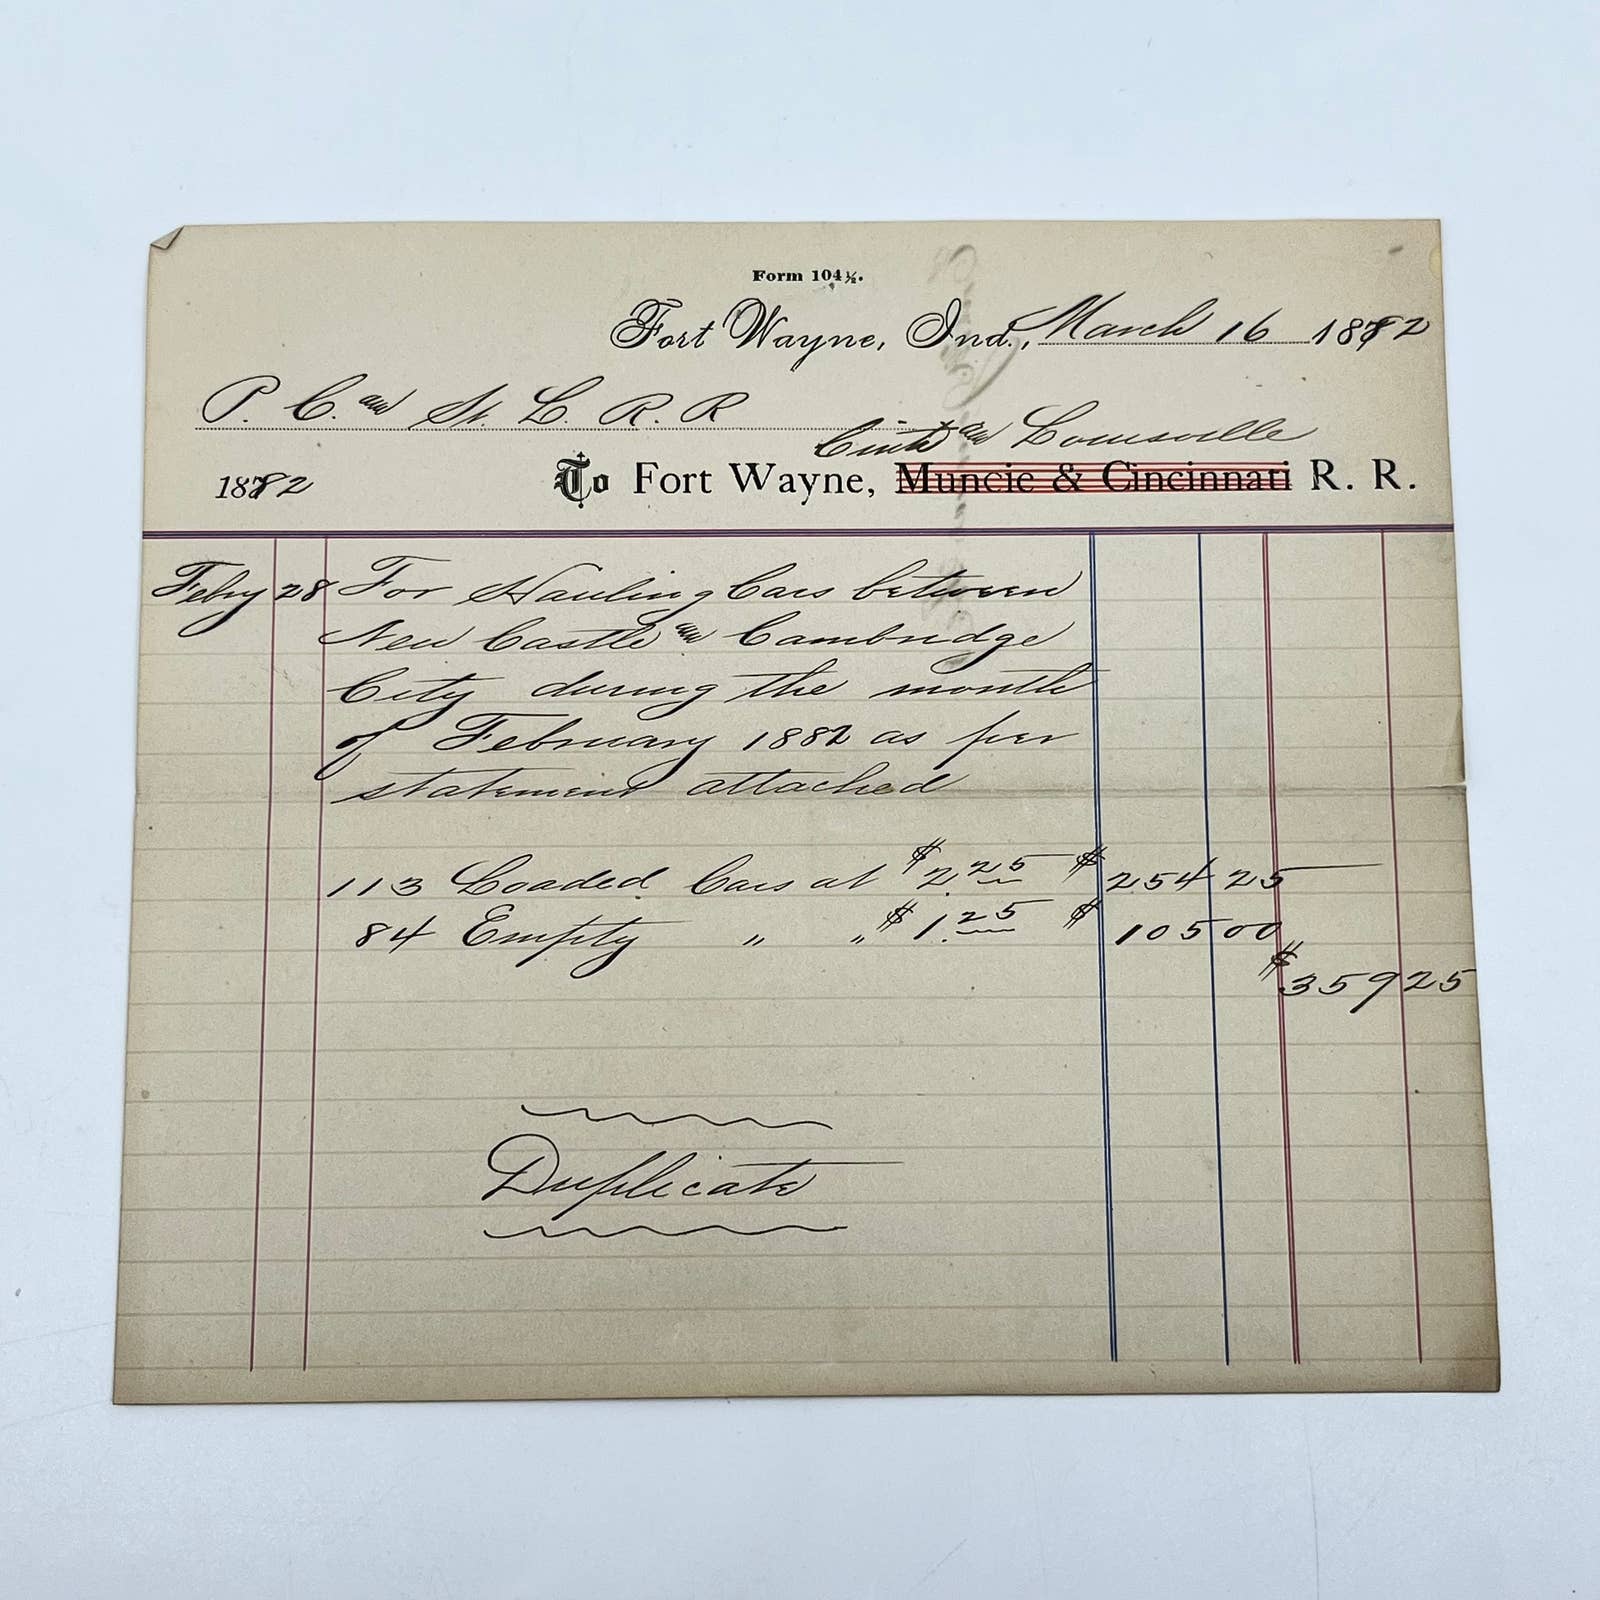 Form 104½.
Fort Wayne, Ind., March 16 1882
P. C. and St. L. R. R
Cinti and Louisville
1882 To Fort Wayne, Muncie & Cincinnati R. R.
Feby 28 For Hauling Cars between
New Castle and Cambridge
City during the month
of February 1882 as per
statement attached
113 Loaded Cars at $2.25 $254 25
84 Empty " " $1.25 $105 00
$359 25
Duplicate